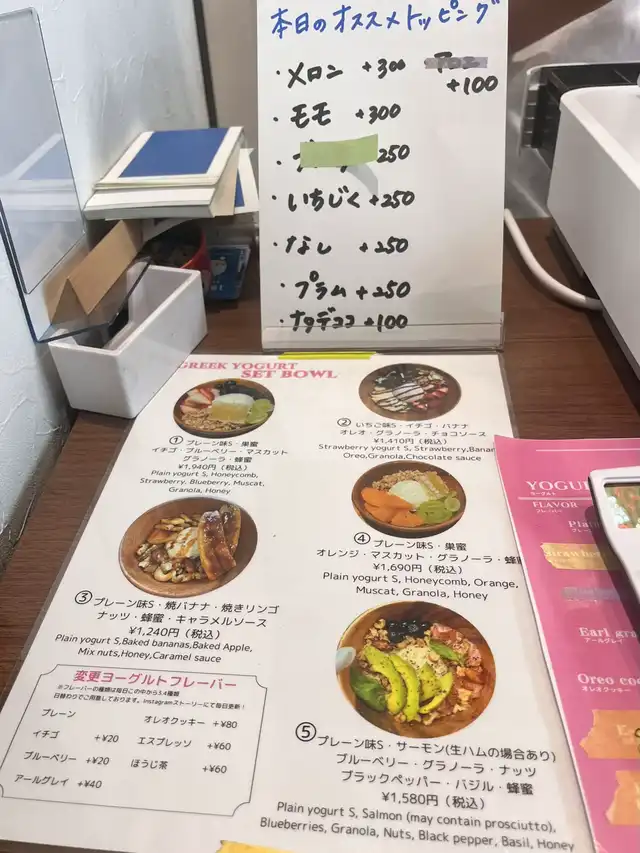 本日のオススメトッピング
・メロン +300
+100
・モモ +300
250
・いちじく +250
・なし +250
・プラム +250
・ナタデココ +100
GREEK YOGURT
SET BOWL
①プレーン味S・巣蜜
イチゴ・ブルーベリー・マスカット
グラノーラ・蜂蜜
¥1,940円（税込）
Plain yogurt S, Honeycomb,
Strawberry, Blueberry, Muscat,
Granola, Honey
②いちご味S・イチゴ・バナナ
オレオ・グラノーラ・チョコソース
¥1,410円（税込）
Strawberry yogurt S, Strawberry,Banan
Oreo,Granola,Chocolate sauce
③プレーン味S・焼バナナ・焼きリンゴ
ナッツ・蜂蜜・キャラメルソース
¥1,240円（税込）
Plain yogurt S,Baked bananas,Baked Apple,
Mix nuts,Honey,Caramel sauce
④プレーン味S・巣蜜
オレンジ・マスカット・グラノーラ・蜂蜜
¥1,690円（税込）
Plain yogurt S, Honeycomb, Orange,
Muscat, Granola, Honey
⑤プレーン味S・サーモン(生ハムの場合あり)
ブルーベリー・グラノーラ・ナッツ
ブラックペッパー・バジル・蜂蜜
¥1,580円（税込）
Plain yogurt S, Salmon (may contain prosciutto),
Blueberries, Granola, Nuts, Black pepper, Basil, Honey
変更ヨーグルトフレーバー
※フレーバーの種類は毎日この中から3.4種類
日替わりでご用意しております。Instagramストーリーにて毎日更新！
プレーン
オレオクッキー +¥80
イチゴ +¥20
エスプレッソ +¥60
ブルーベリー +¥20
ほうじ茶 +¥60
アールグレイ +¥40
YOGU
ヨーグルト
FLAVOR
フレーバー
Plai
Earl gra
アールグレイ
Oreo coo
オレオクッキー